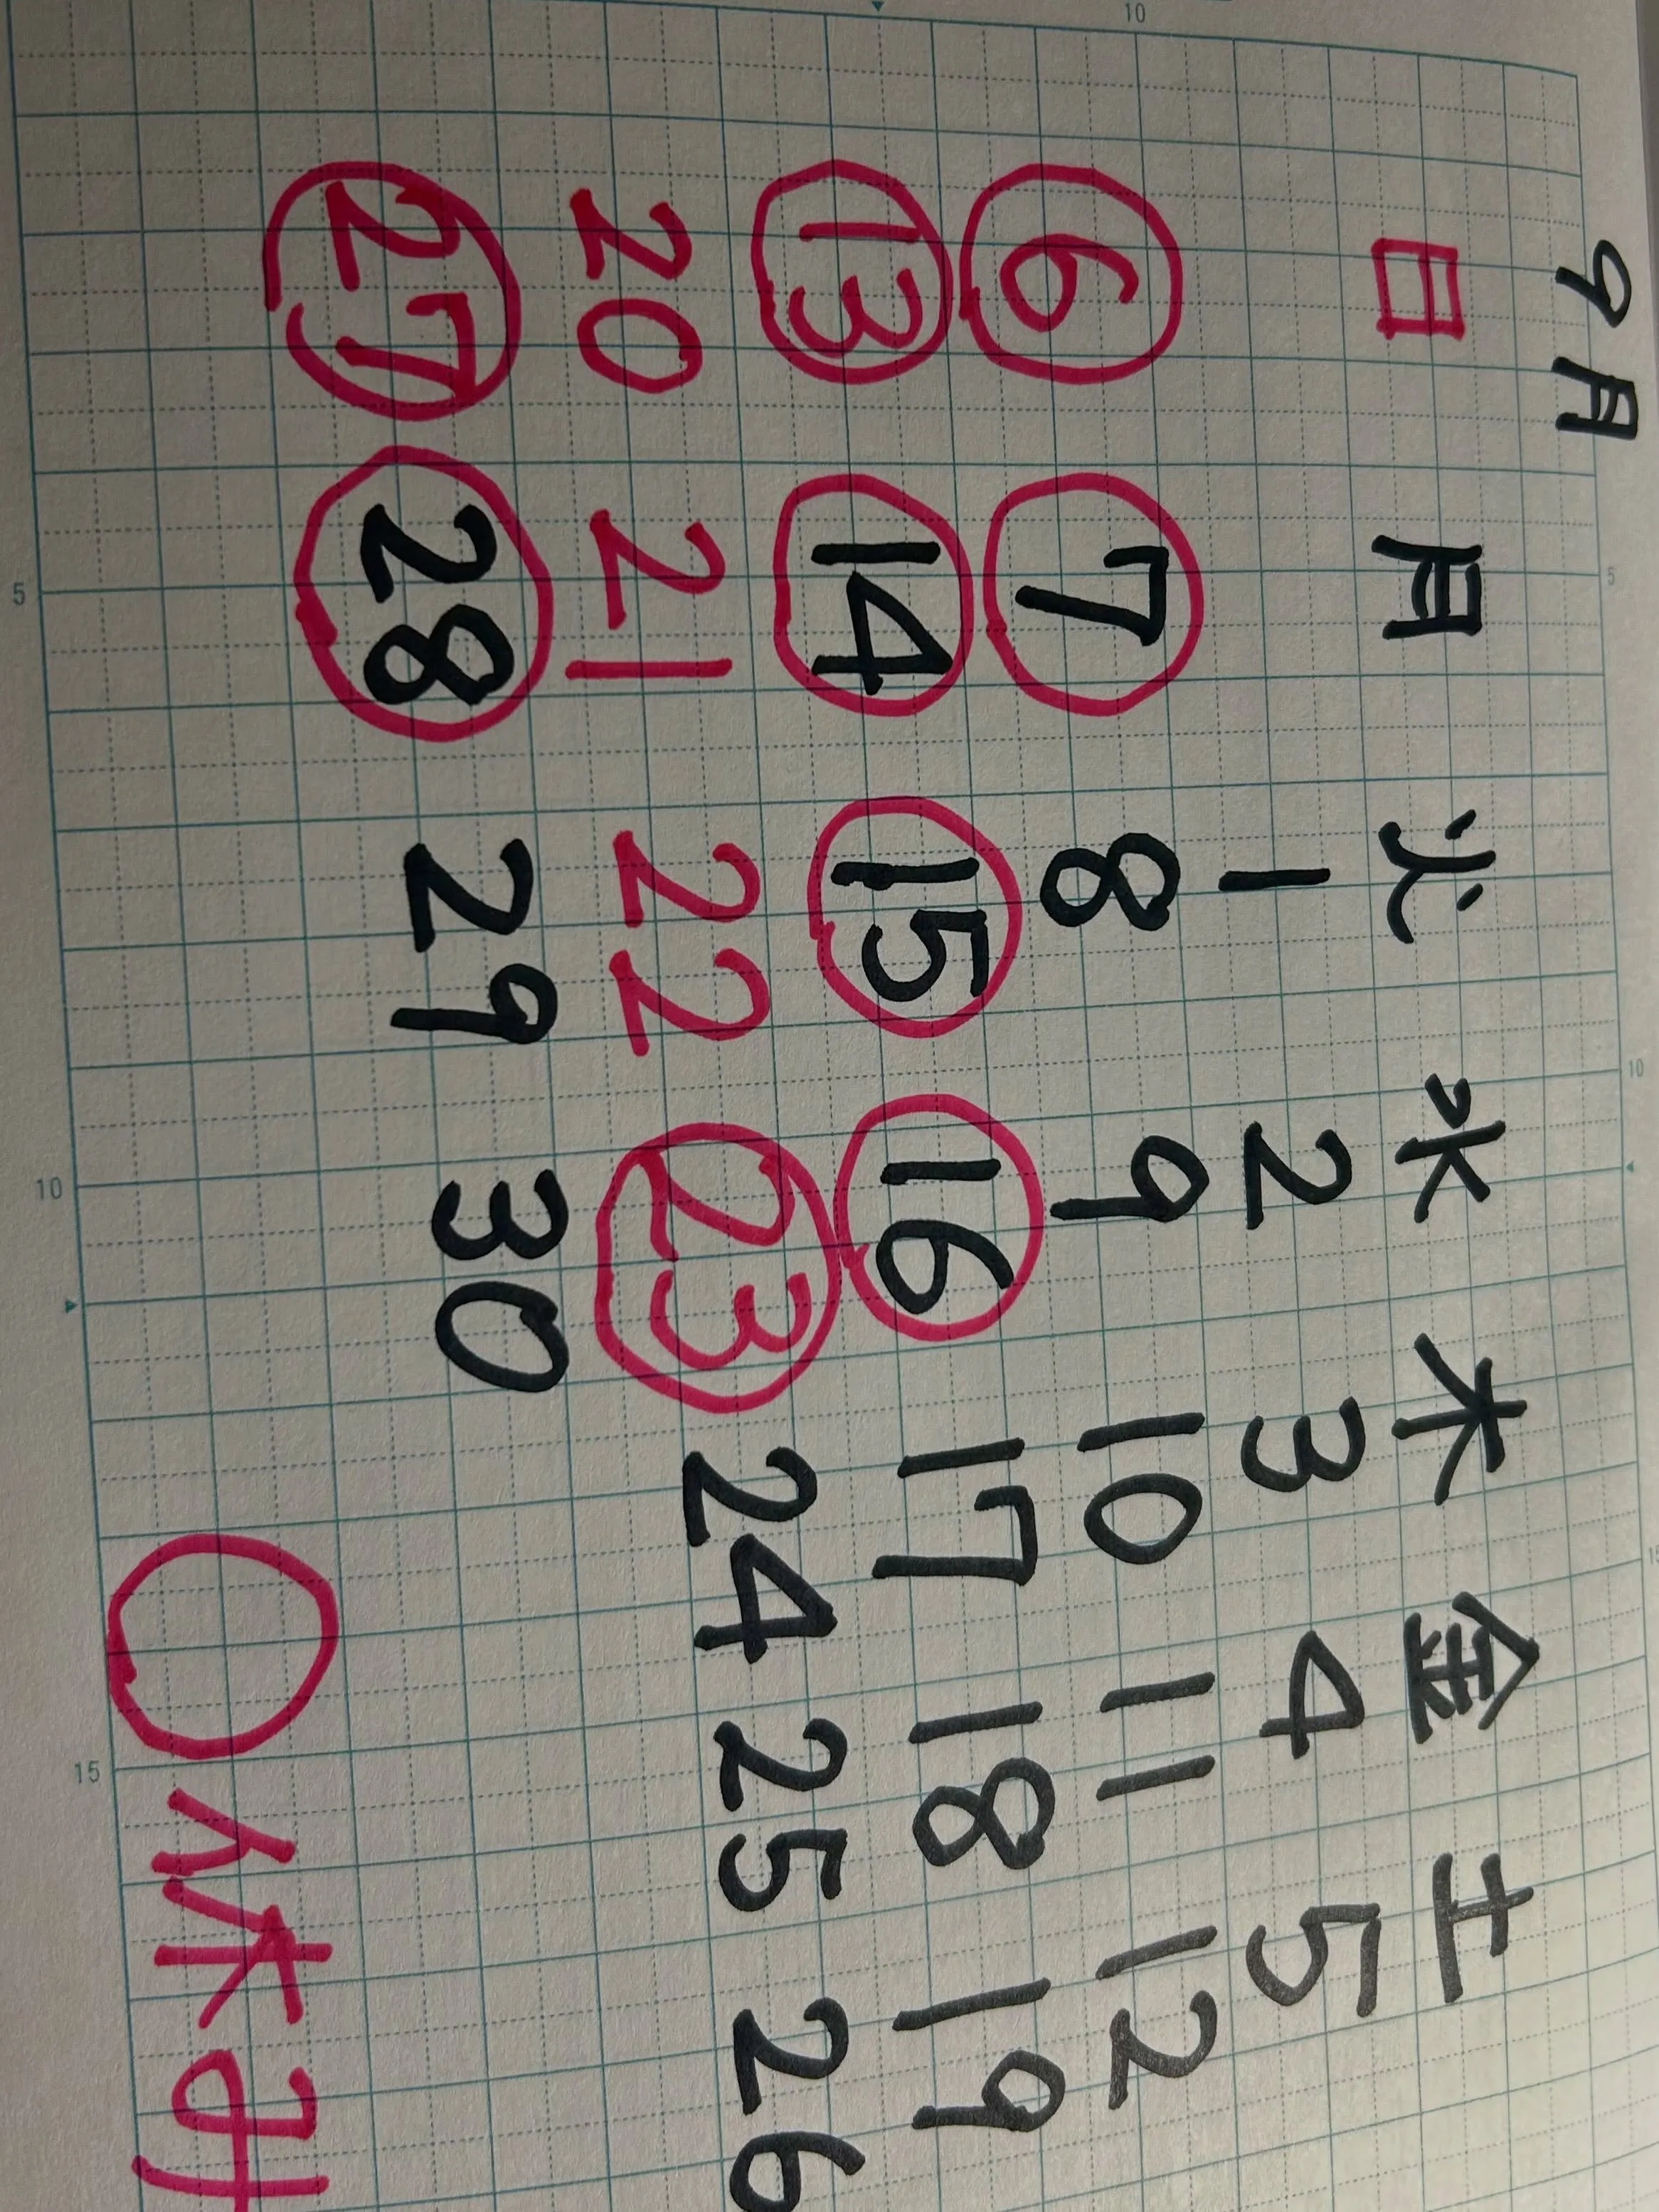 9月
日 月 火 水 木 金 土
1 2 3 4 5
6 7 8 9 10 11 12
13 14 15 16 17 18 19
20 21 22 23 24 25 26
27 28 29 30
○休み